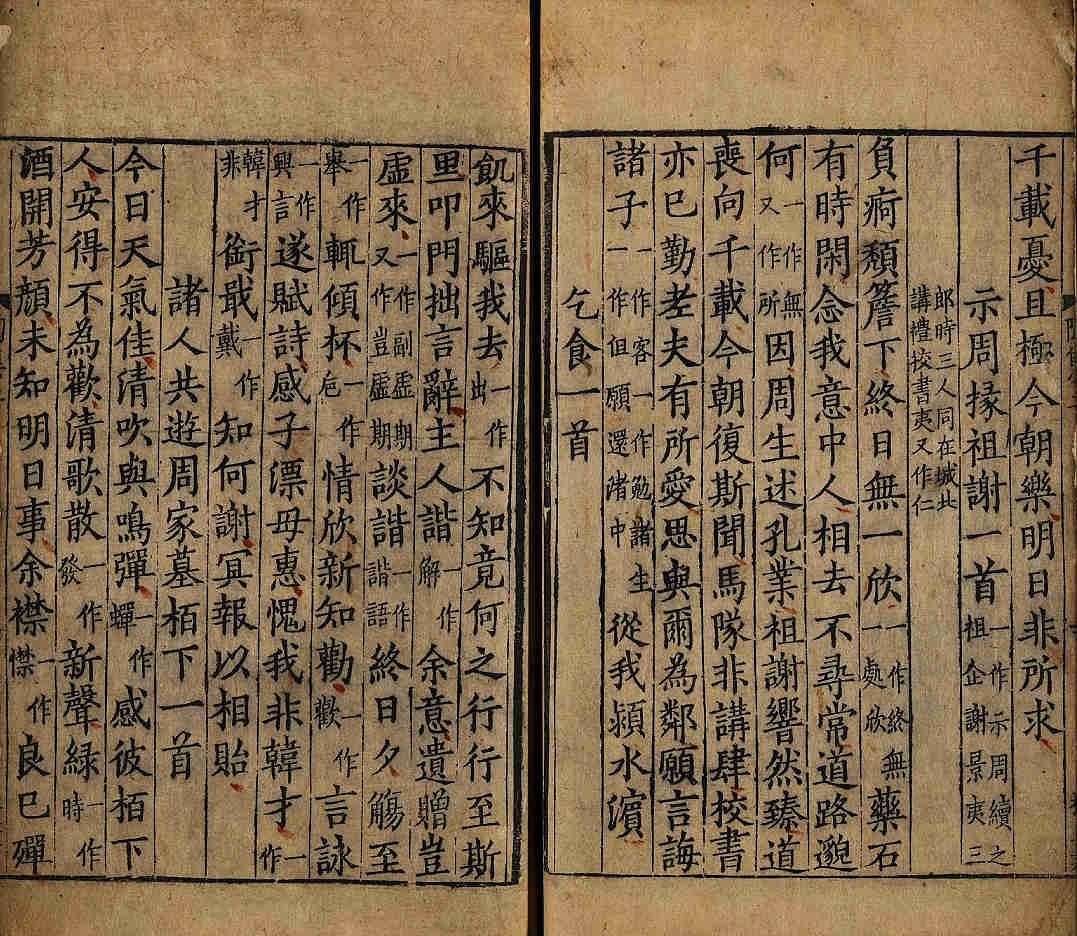 千載憂且極今朝樂明日非所求
示周掾祖謝一首一作示周續之祖企謝景夷三
郎時三人同在城北講禮校書夷又作仁
負痾頹簷下終日無一欣一作終無處欣藥石
有時閑念我意中人相去不尋常道路邈
何一作無又作所因周生述孔業祖謝響然臻道
喪向千載今朝復斯聞馬隊非講肆校書
亦已勤老夫有所愛思與爾為鄰願言誨
諸子一作客一作勉諸生一作但願還渚中從我潁水濱
乞食一首
飢來驅我去一作出不知竟何之行行至斯
里叩門拙言辭主人諧一作解余意遺贈豈
虛來一作副虛期又作豈虛期談諧一作諧語終日夕觴至
舉一作輒傾杯一作卮情欣新知勸一作歡言詠
一作興言遂賦詩感子漂母惠愧我非韓才一作
韓才非銜戢一作戴知何謝冥報以相貽
諸人共遊周家墓栢下一首
今日天氣佳清吹與鳴彈一作蟬感彼栢下
人安得不為歡清歌散一作發新聲綠一作時
酒開芳顏未知明日事余襟一作懍良已殫